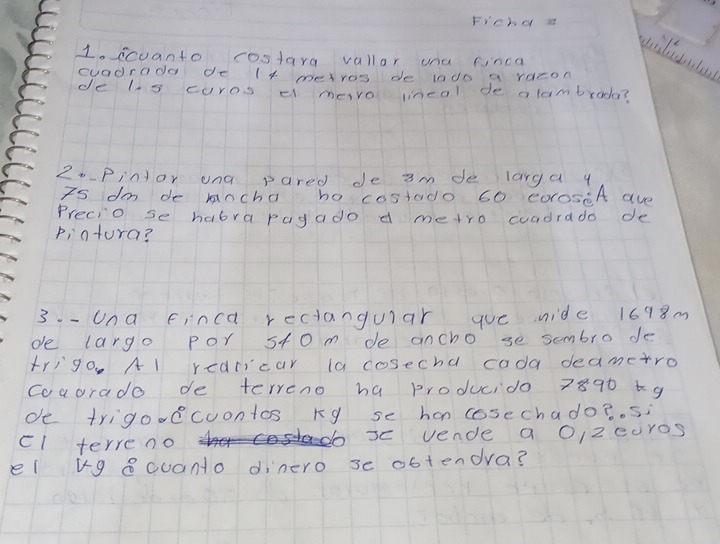 Ficha 2
1.- ¿cuanto costara vallar una finca
cuadrada de 14 metros de lado a razon
de 1.5 euros el metro lineal de alambrada?
2.- Pintar una pared de 8m de larga y
75 dm de ancha ha costado 60 euros¿A que
Precio se habra pagado el metro cuadrado de
Pintura?
3.- Una finca rectangular que mide 1698m
de largo por 540m de ancho se sembro de
trigo. Al realicar la cosecha cada deametro
cuadrado de terreno ha producido 7890 kg
de trigo.¿cuontos kg se han cosechado?.si
el terreno ha costado se vende a 0,2 euros
el kg ¿cuanto dinero se obtendra?